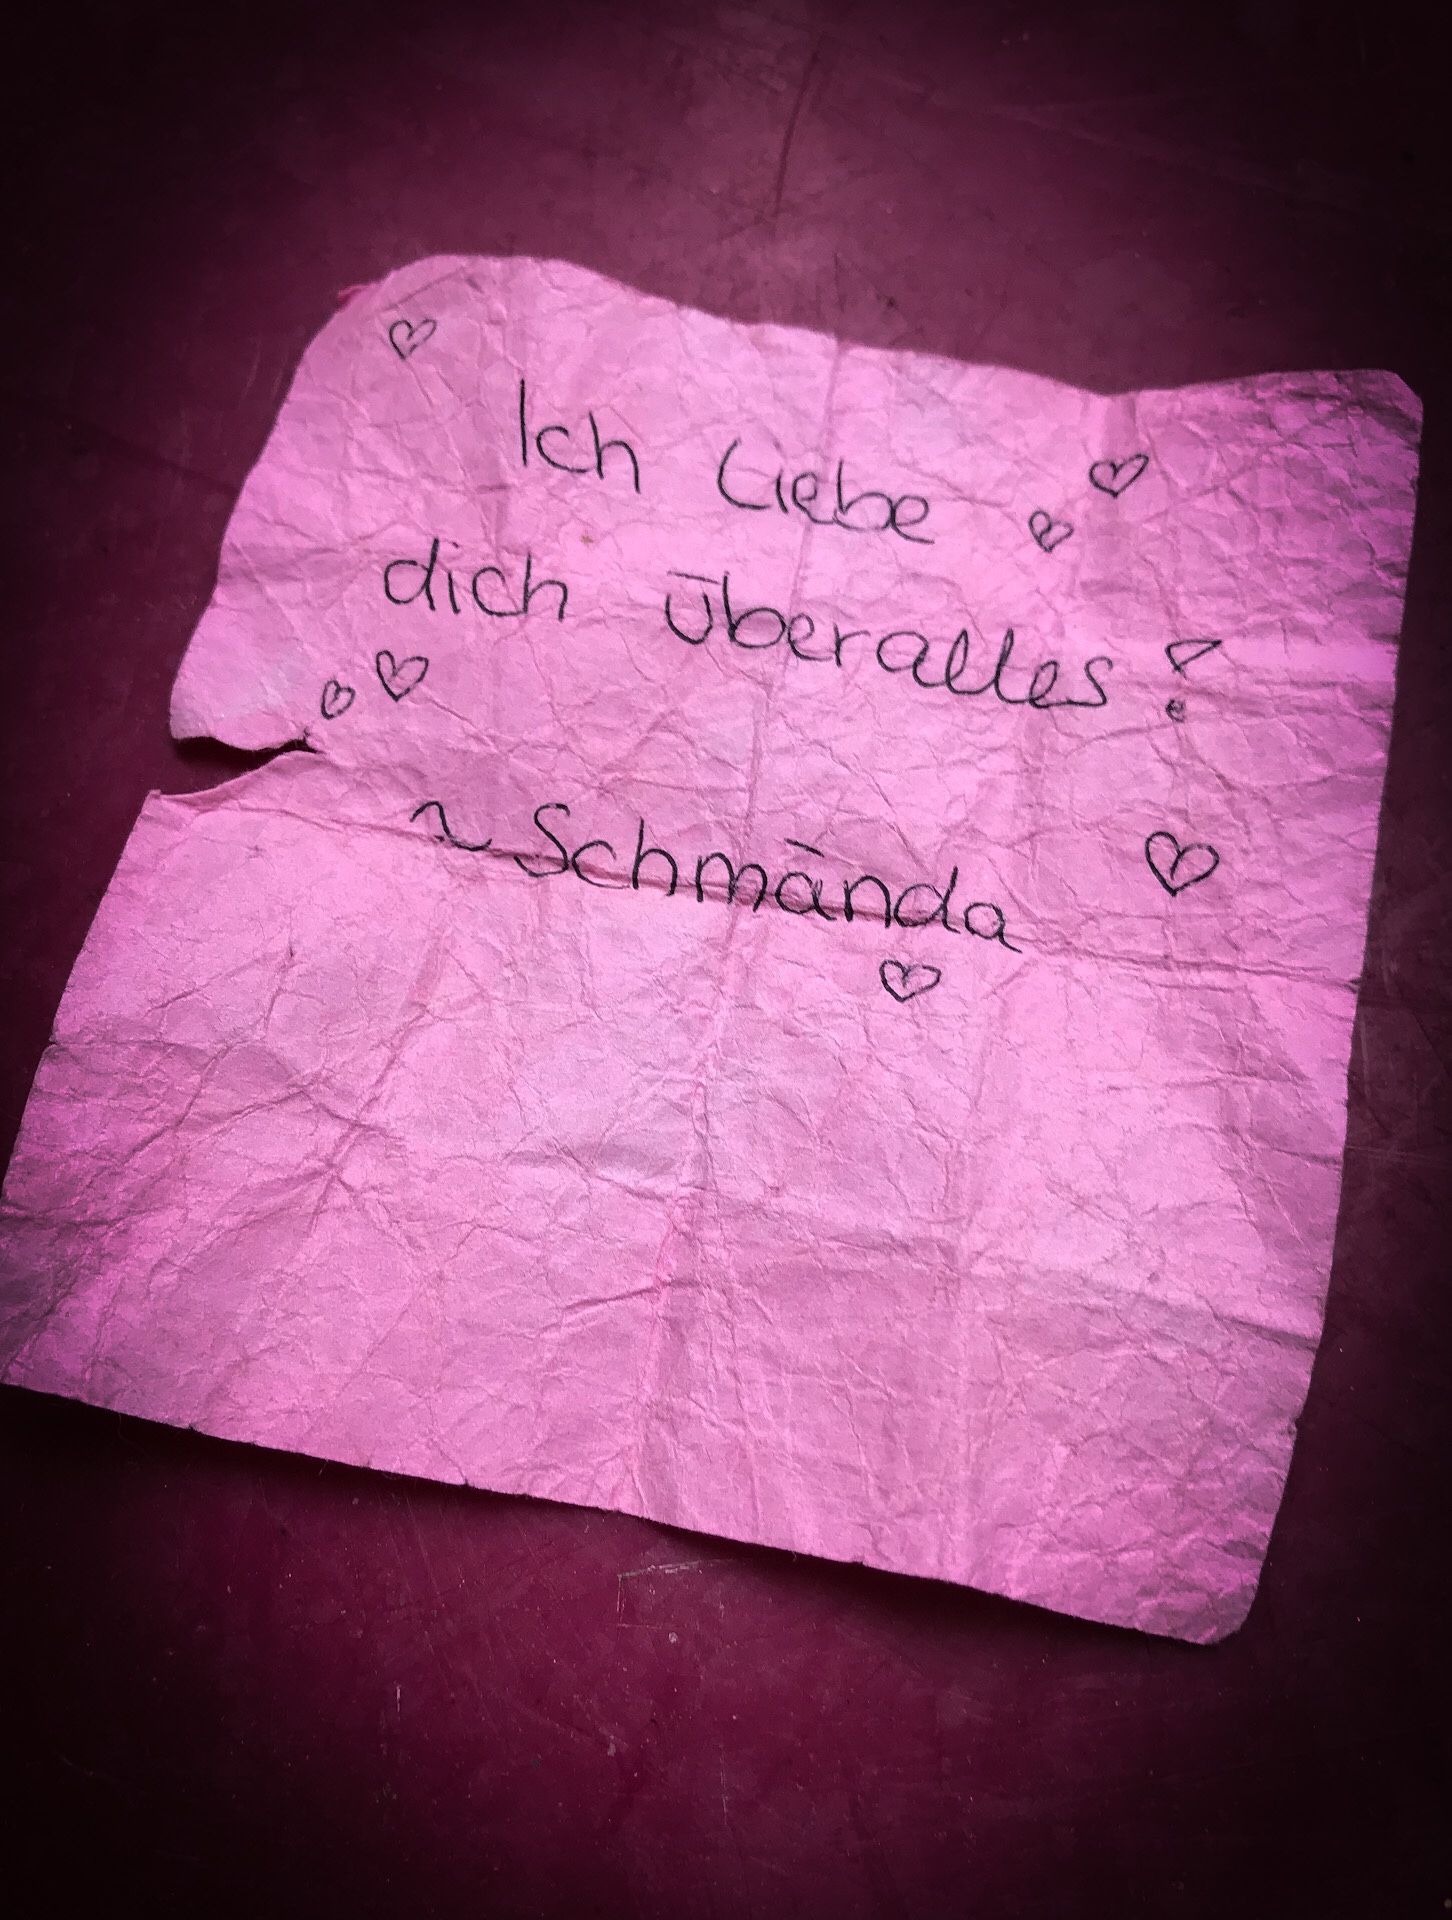 Ich Liebe
dich überalles!
~ Schmānda